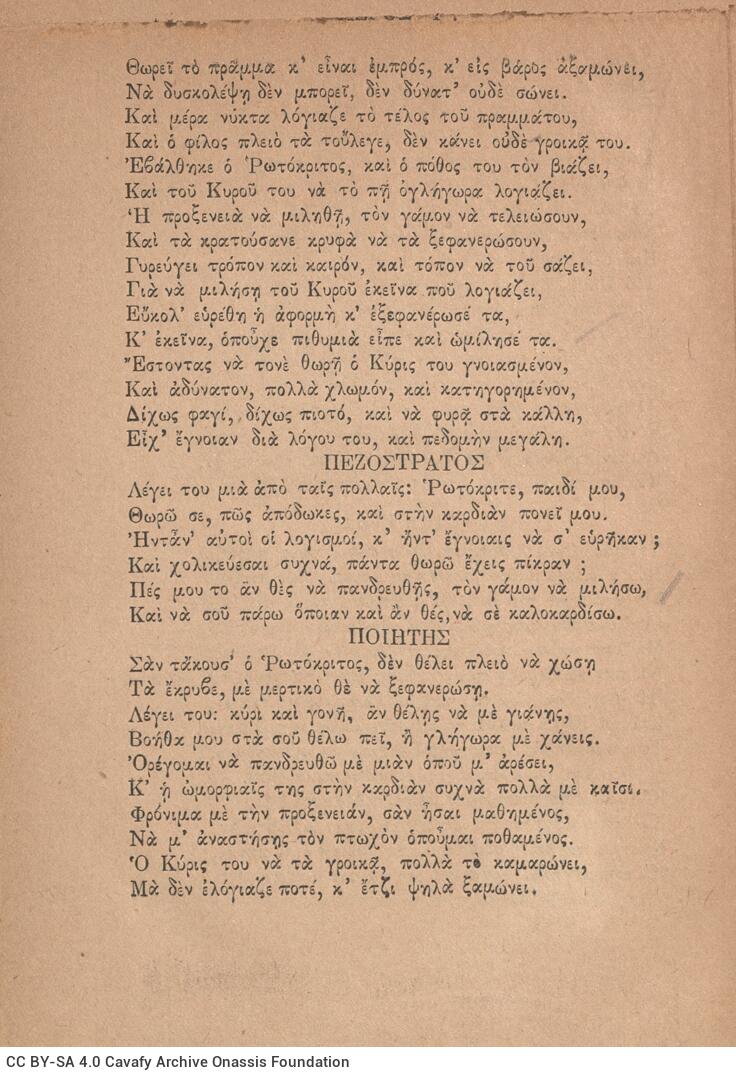 Θωρεῖ τὸ πρᾶμμα κ' εἶναι ἐμπρός, κ' εἰς βάρος ἀξαμώνει,
Νὰ δυσκολέψῃ δὲν μπορεῖ, δὲν δύνατ' οὐδὲ σώνει.
Καὶ μέρα νύκτα λόγιαζε τὸ τέλος τοῦ πραμμάτου,
Καὶ ὁ φίλος πλειὸ τὰ τοὔλεγε, δὲν κάνει οὐδὲ γροικᾷ του.
Ἐβάλθηκε ὁ Ῥωτόκριτος, καὶ ὁ πόθος του τὸν βιάζει,
Καὶ τοῦ Κυροῦ του νὰ τὸ πῇ ὀγλήγωρα λογιάζει.
Ἡ προξενειὰ νὰ μιληθῇ, τὸν γάμον νὰ τελειώσουν,
Καὶ τὰ κρατούσανε κρυφὰ νὰ τὰ ξεφανερώσουν,
Γυρεύγει τρόπον καὶ καιρόν, καὶ τόπον νὰ τοῦ σάζει,
Γιὰ νὰ μιλήσῃ τοῦ Κυροῦ ἐκεῖνα ποῦ λογιάζει,
Εὔκολ' εὑρέθη ἡ ἀφορμὴ κ' ἐξεφανέρωσέ τα,
Κ' ἐκεῖνα, ὁποῦχε πιθυμιὰ εἶπε καὶ ὡμίλησέ τα.
Ἔστοντας νὰ τονὲ θωρῇ ὁ Κύρις του γνοιασμένον,
Καὶ ἀδύνατον, πολλὰ χλωμόν, καὶ κατηγορημένον,
Δίχως φαγί, δίχως πιοτό, καὶ νὰ φυρᾷ στὰ κάλλη,
Εἶχ' ἔγνοιαν διὰ λόγου του, καὶ πεδομὴν μεγάλη.
ΠΕΖΟΣΤΡΑΤΟΣ
Λέγει του μιὰ ἀπὸ ταῖς πολλαῖς: Ῥωτόκριτε, παιδί μου,
Θωρῶ σε, πῶς ἀπόδωκες, καὶ στὴν καρδιὰν πονεῖ μου.
Ἠντἆν' αὐτοὶ οἱ λογισμοί, κ' ἤντ' ἔγνοιαις νὰ σ' εὑρῆκαν ;
Καὶ χολικεύεσαι συχνά, πάντα θωρῶ ἔχεις πίκραν ;
Πές μου το ἂν θὲς νὰ πανδρευθῇς, τὸν γάμον νὰ μιλήσω,
Καὶ νὰ σοῦ πάρω ὅποιαν καὶ ἂν θές, νὰ σὲ καλοκαρδίσω.
ΠΟΙΗΤΗΣ
Σὰν τἄκουσ' ὁ Ῥωτόκριτος, δὲν θέλει πλειὸ νὰ χώσῃ
Τὰ ἔκρυβε, μὲ μερτικὸ θὲ νὰ ξεφανερώσῃ.
Λέγει του: κύρι καὶ γονῆ, ἂν θέλῃς νὰ μὲ γιάνῃς,
Βοήθα μου στὰ σοῦ θέλω πεῖ, ἢ γλήγωρα μὲ χάνεις.
Ὀρέγομαι νὰ πανδρευθῶ μὲ μιὰν ὁποῦ μ' ἀρέσει,
Κ' ἡ ὠμορφιαῖς της στὴν καρδιὰν συχνὰ πολλὰ μὲ καῖσι.
Φρόνιμα μὲ τὴν προξενειάν, σὰν ἦσαι μαθημένος,
Νὰ μ' ἀναστήσῃς τὸν πτωχὸν ὁποῦμαι ποθαμένος.
Ὁ Κύρις του νὰ τὰ γροικᾷ, πολλὰ τὸ καμαρώνει,
Μὰ δὲν ἐλόγιαζε ποτέ, κ' ἔτζι ψηλὰ ξαμώνει.
CC BY-SA 4.0 Cavafy Archive Onassis Foundation